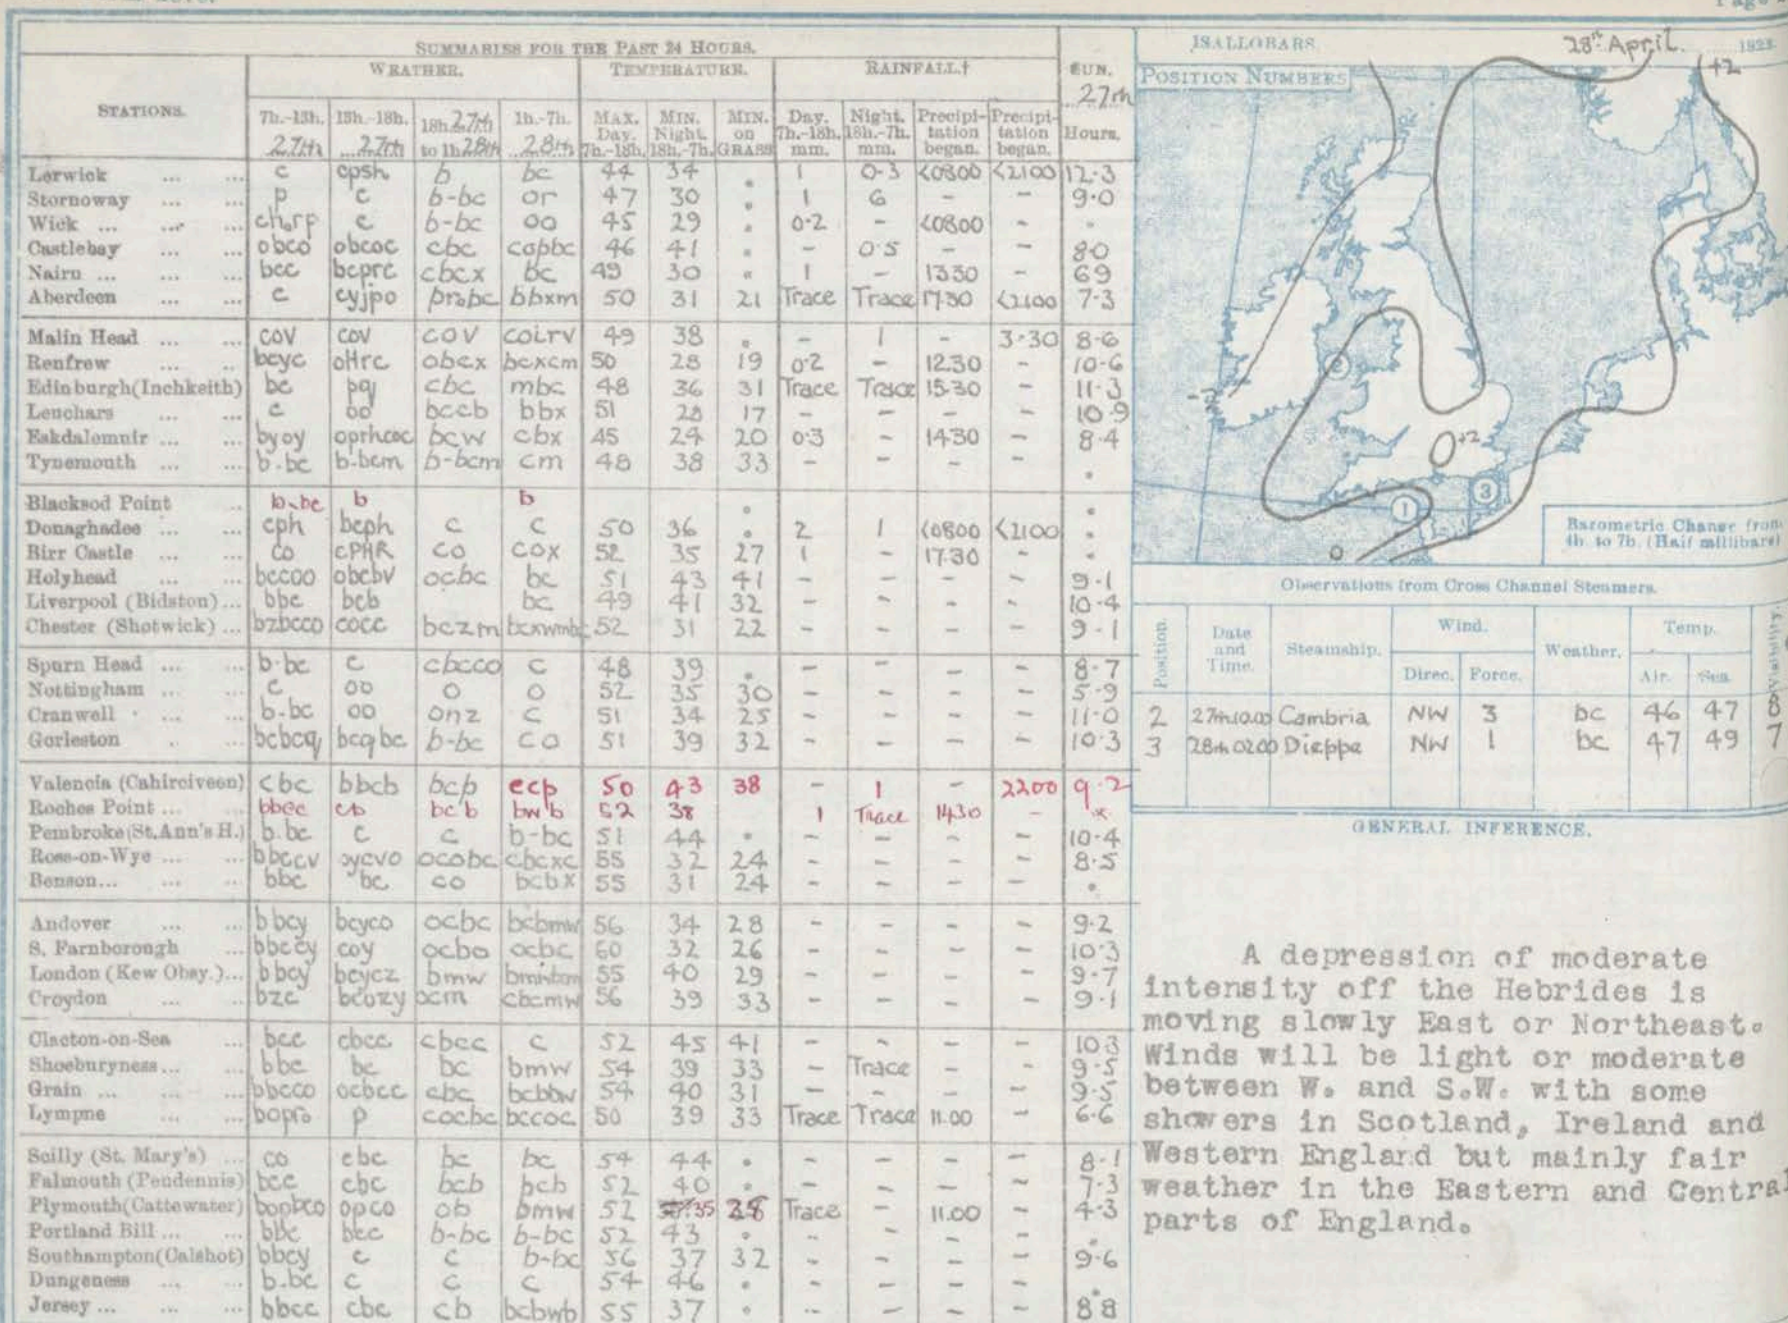 SUMMARIES FOR THE PAST 24 HOURS.
STATIONS. WEATHER. TEMPERATURE. RAINFALL.† SUN. 27th
7h.-13h. 27th 13h.-18h. 27th 18h. 27th to 1h. 28th 1h.-7h. 28th MAX. Day. 7h.-18h. MIN. Night. 18h.-7h. MIN. on GRASS Day. 7h.-18h. mm. Night. 18h.-7h. mm. Precipitation began. Precipitation began. Hours.
Lerwick ... ... c cpsh b bc 44 34 . 1 0.3 <0800 <2100 12.3
Stornoway ... ... p c b-bc or 47 30 . 1 6 - - 9.0
Wick ... ... ... ch,rp c b-bc oo 45 29 . 0.2 - <0800 .
Castlebay ... ... obco obcoc cbc copbc 46 41 . - 0.5 - - 8.0
Nairn ... ... ... bcc bcprc cbcx bc 49 30 . 1 - 1330 - 6.9
Aberdeen ... ... c cyjpo probc bbxm 50 31 21 Trace Trace 17.30 <2100 7.3
Malin Head ... ... cov cov cov coirv 49 38 . - 1 - 3.30 8.6
Renfrew ... .. bcyc oHrc obcx bcxcm 50 28 19 0.2 - 12.30 - 10.6
Edinburgh(Inchkeith) bc pqj cbc mbc 48 36 31 Trace Trace 15.30 - 11.3
Leuchars ... ... c oo bccb bbx 51 28 17 - - - - 10.9
Eskdalemuir ... ... byoy oprhcoc bcw cbx 45 24 20 0.3 - 14.30 - 8.4
Tynemouth ... ... b-bc b-bcm b-bcm cm 48 38 33 - - - - .
Blacksod Point .. b-bc b b . .
Donaghadee ... ... cph bcph c c 50 36 . 2 1 <0800 <2100 .
Birr Castle ... ... co cPHR co cox 52 35 27 1 - 17.30 - .
Holyhead ... ... bccoo obcbv ocbc bc 51 43 41 - - - - 9.1
Liverpool (Bidston)... bbc bcb bc 49 41 32 - - - - 10.4
Chester (Shotwick) ... bzbcco cocc bczm bcxwmbc 52 31 22 - - - - 9.1
Spurn Head ... ... b-bc c cbcco c 48 39 . - - - - 8.7
Nottingham ... ... c oo o o 52 35 30 - - - - 5.9
Cranwell ... ... b-bc oo onz c 51 34 25 - - - - 11.0
Gorleston .. ... bcbcq bcqbc b-bc co 51 39 32 - - - - 10.3
Valencia (Cahirciveen) cbc bbcb bcp ecp 50 43 38 - 1 - 2200 9.2
Roches Point ... ... bbcc cb bcb bwb 52 38 1 Trace 1430 - *
Pembroke(St.Ann's H.) b.bc c c b-bc 51 44 . - - - - 10.4
Ross-on-Wye ... ... bbccv ycvo ocobc cbcxc 55 32 24 - - - - 8.5
Benson... ... ... bbc bc co bcbx 55 31 24 - - - - .
Andover ... ... bbcy bcyco ocbc bcbmw 56 34 28 - - - - 9.2
S. Farnborough ... bbccy coy ocbo ocbc 60 32 26 - - - - 10.3
London (Kew Obsy.)... bbcy bcycz bmw 55 40 29 - - - - 9.7
Croydon ... .. bzc bcozy ocm cbcmw 56 39 33 - - - - 9.1
Clacton-on-Sea ... bcc cbcc cbcc c 52 45 41 - - - - 10.3
Shoeburyness... ... bbc bc bc bmw 54 39 33 - Trace - - 9.5
Grain ... ... ... bbcco ocbcc cbc bcbbw 54 40 31 - - - - 9.5
Lympne ... ... bopro p cocbc bccoc 50 39 33 Trace Trace 11.00 - 6.6
Scilly (St. Mary's) ... co cbc bc bc 54 44 . - - - - 8.1
Falmouth (Pendennis) bcc cbc bcb bcb 52 40 . - - - - 7.3
Plymouth(Cattewater) bopbco opco ob bmw 52 35 28 Trace - 11.00 - 4.3
Portland Bill ... ... bbc bcc b-bc b-bc 52 43 . .. - - - .
Southampton(Calshot) bbcy c c b-bc 56 37 32 - - - - 9.6
Dungeness ... ... b.bc c c c 54 46 . - - - - .
Jersey ... ... ... bbcc cbc cb bcbwb 55 37 . .. - - - 8.8
ISALLOBARS. 28th April. 192
POSITION NUMBERS
+2
2
+2
3
1
0
Barometric Change from
4h. to 7h. (Half millibars)
Observations from Cross Channel Steamers.
Position. Date and Time. Steamship. Wind. Direc. Force. Weather. Temp. Air. Sea. Visibility.
2 27th 10.00 Cambria NW 3 bc 46 47 8
3 28th 0200 Dieppe NW 1 bc 47 49 7
GENERAL INFERENCE.
A depression of moderate
intensity off the Hebrides is
moving slowly East or Northeast.
Winds will be light or moderate
between W. and S.W. with some
showers in Scotland, Ireland and
Western England but mainly fair
weather in the Eastern and Central
parts of England.